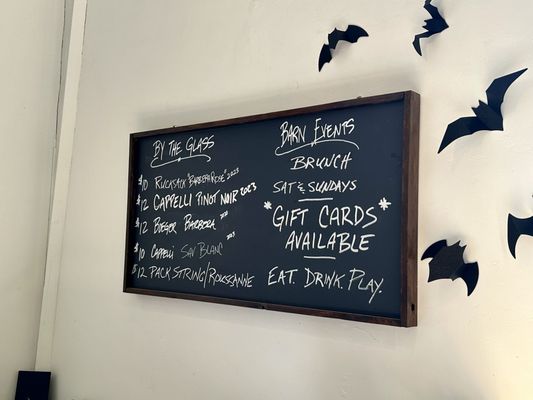 BY THE GLASS
$10 RUCKSACK "BARBERA ROSÉ" 2023
$12 CAPPELLI PINOT NOIR 2023
$12 BIEGER BARBERA
$10 CAPPELLI SAV BLANC 2023
$12 PACK STRING/ROUSSANNE
BARN EVENTS
BRUNCH
SAT & SUNDAYS
*GIFT CARDS*
AVAILABLE
EAT. DRINK. PLAY.